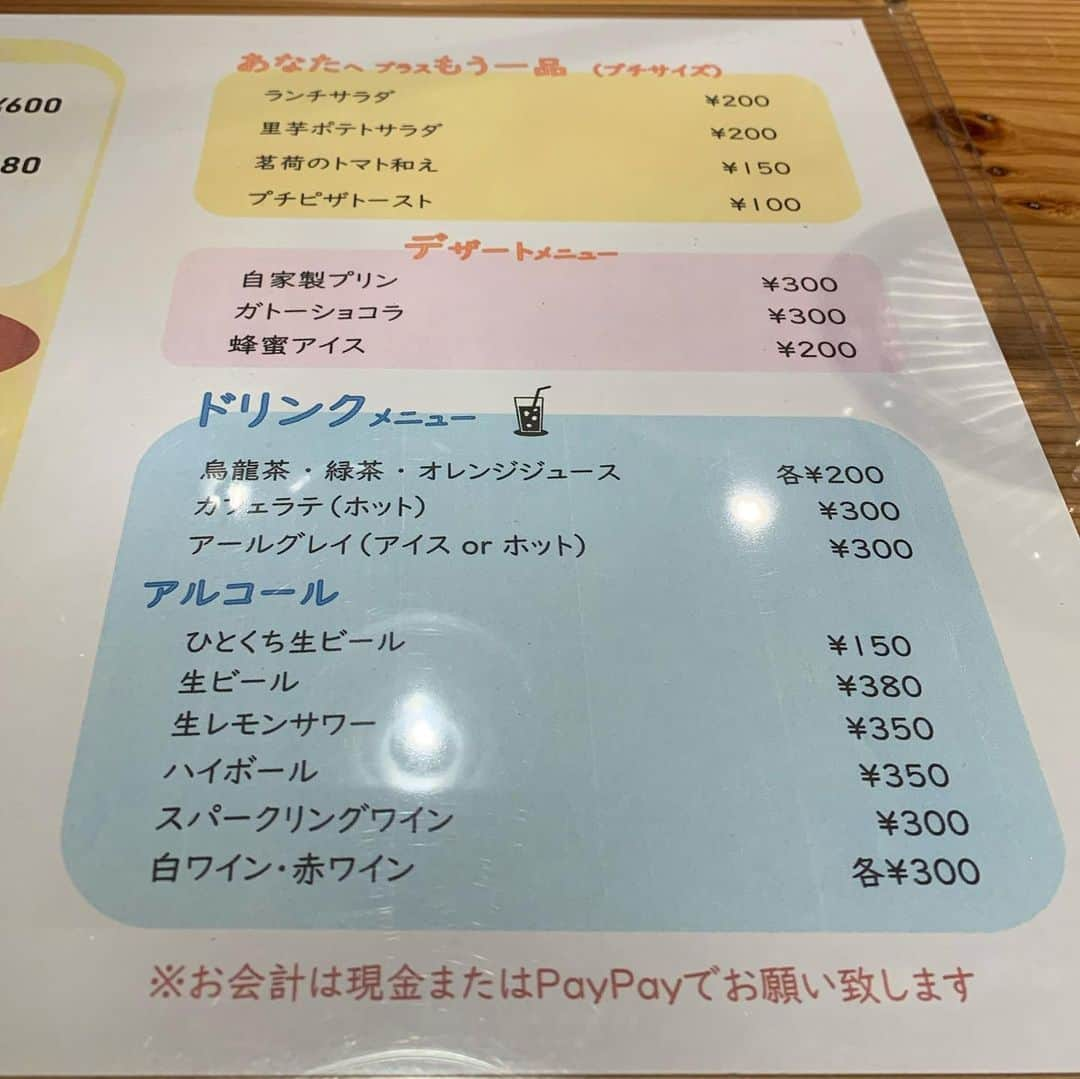 ¥600
80
あなたへ プラスもう一品 (プチサイズ)
ランチサラダ ¥200
里芋ポテトサラダ ¥200
茗荷のトマト和え ¥150
プチピザトースト ¥100
デザートメニュー
自家製プリン ¥300
ガトーショコラ ¥300
蜂蜜アイス ¥200
ドリンクメニュー
烏龍茶・緑茶・オレンジジュース 各¥200
カフェラテ(ホット) ¥300
アールグレイ(アイス or ホット) ¥300
アルコール
ひとくち生ビール ¥150
生ビール ¥380
生レモンサワー ¥350
ハイボール ¥350
スパークリングワイン ¥300
白ワイン・赤ワイン 各¥300
※お会計は現金またはPayPayでお願い致します